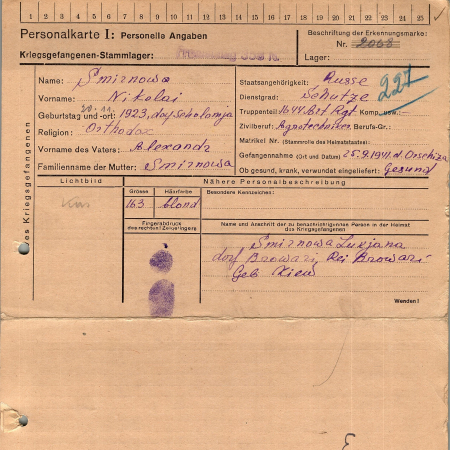 1 2 3 4 5 6 7 8 9 10 11 12 13 14 15 16 17 18 19 20 21 22 23 24 25
Personalkarte I: Personelle Angaben
Kriegsgefangenen-Stammlager:
Beschriftung der Erkennungsmarke:
Nr. 2068
Lager:
des Kriegsgefangenen
Name: Smirnowa
Vorname: Nikolai
Geburtstag und -ort: 20.11.1923, dorf
Religion: Orthodox
Vorname des Vaters: Alexandr
Familienname der Mutter: Smirnowa
Staatsangehörigkeit: Russe
Dienstgrad: Schutze
Truppenteil: 1644 Art Rgt Komp. usw.:
Zivilberuf: Agrotechniker Berufs-Gr.:
Matrikel Nr. (Stammrolle des Heimatstaates):
Gefangennahme (Ort und Datum): 25.9.1941 d. Orschiza
Ob gesund, krank, verwundet eingeliefert: Gesund
227
Lichtbild
Nähere Personalbeschreibung
Grösse
Haarfarbe
Besondere Kennzeichen:
163
blond
Fingerabdruck
des rechten! Zeigefingers
Name und Anschrift der zu benachrichtigenden Person in der Heimat
des Kriegsgefangenen
Smirnowa
dorf Browari, Rei Browari
Geb Kiew
Wenden!